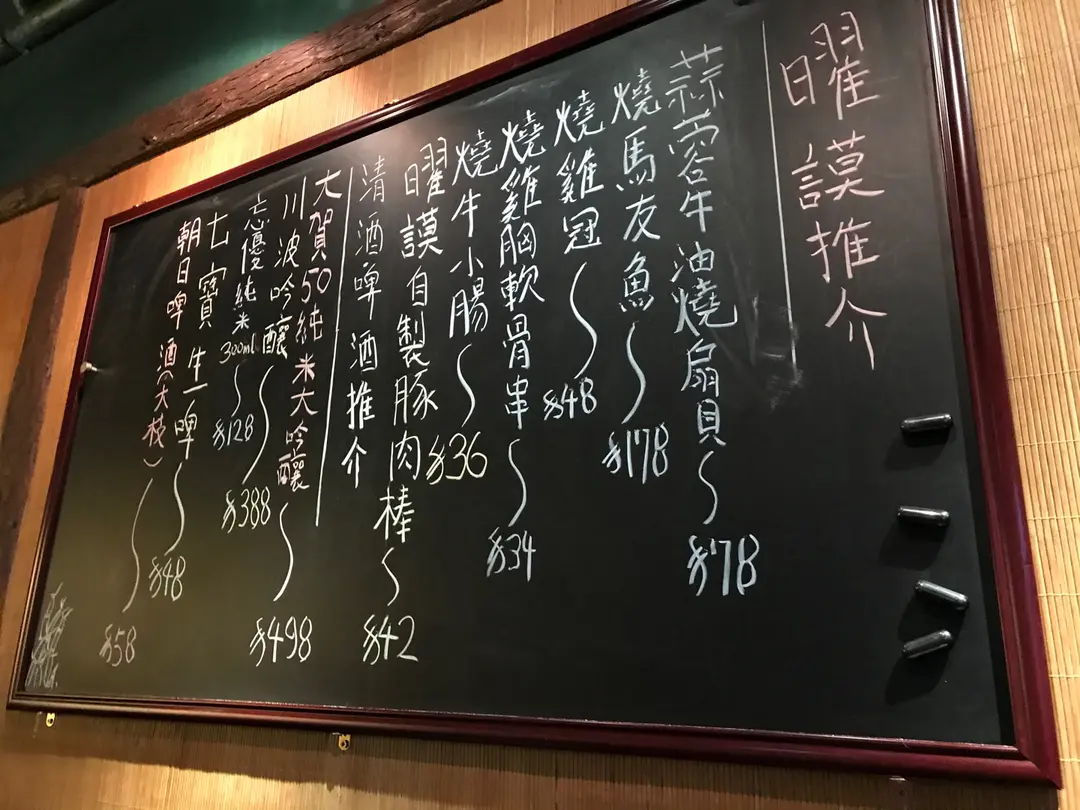 曜謨推介
蒜蓉牛油燒扇貝~$78
燒馬友魚~$178
燒雞冠~$48
燒雞胸軟骨串~$34
燒牛小腸~$36
曜謨自製豚肉棒~$42
清酒啤酒推介
大賀50純米大吟釀~$498
川波吟釀~$388
忘優純米300ml~$128
七寶生啤~$48
朝日啤酒(大枝)~$58